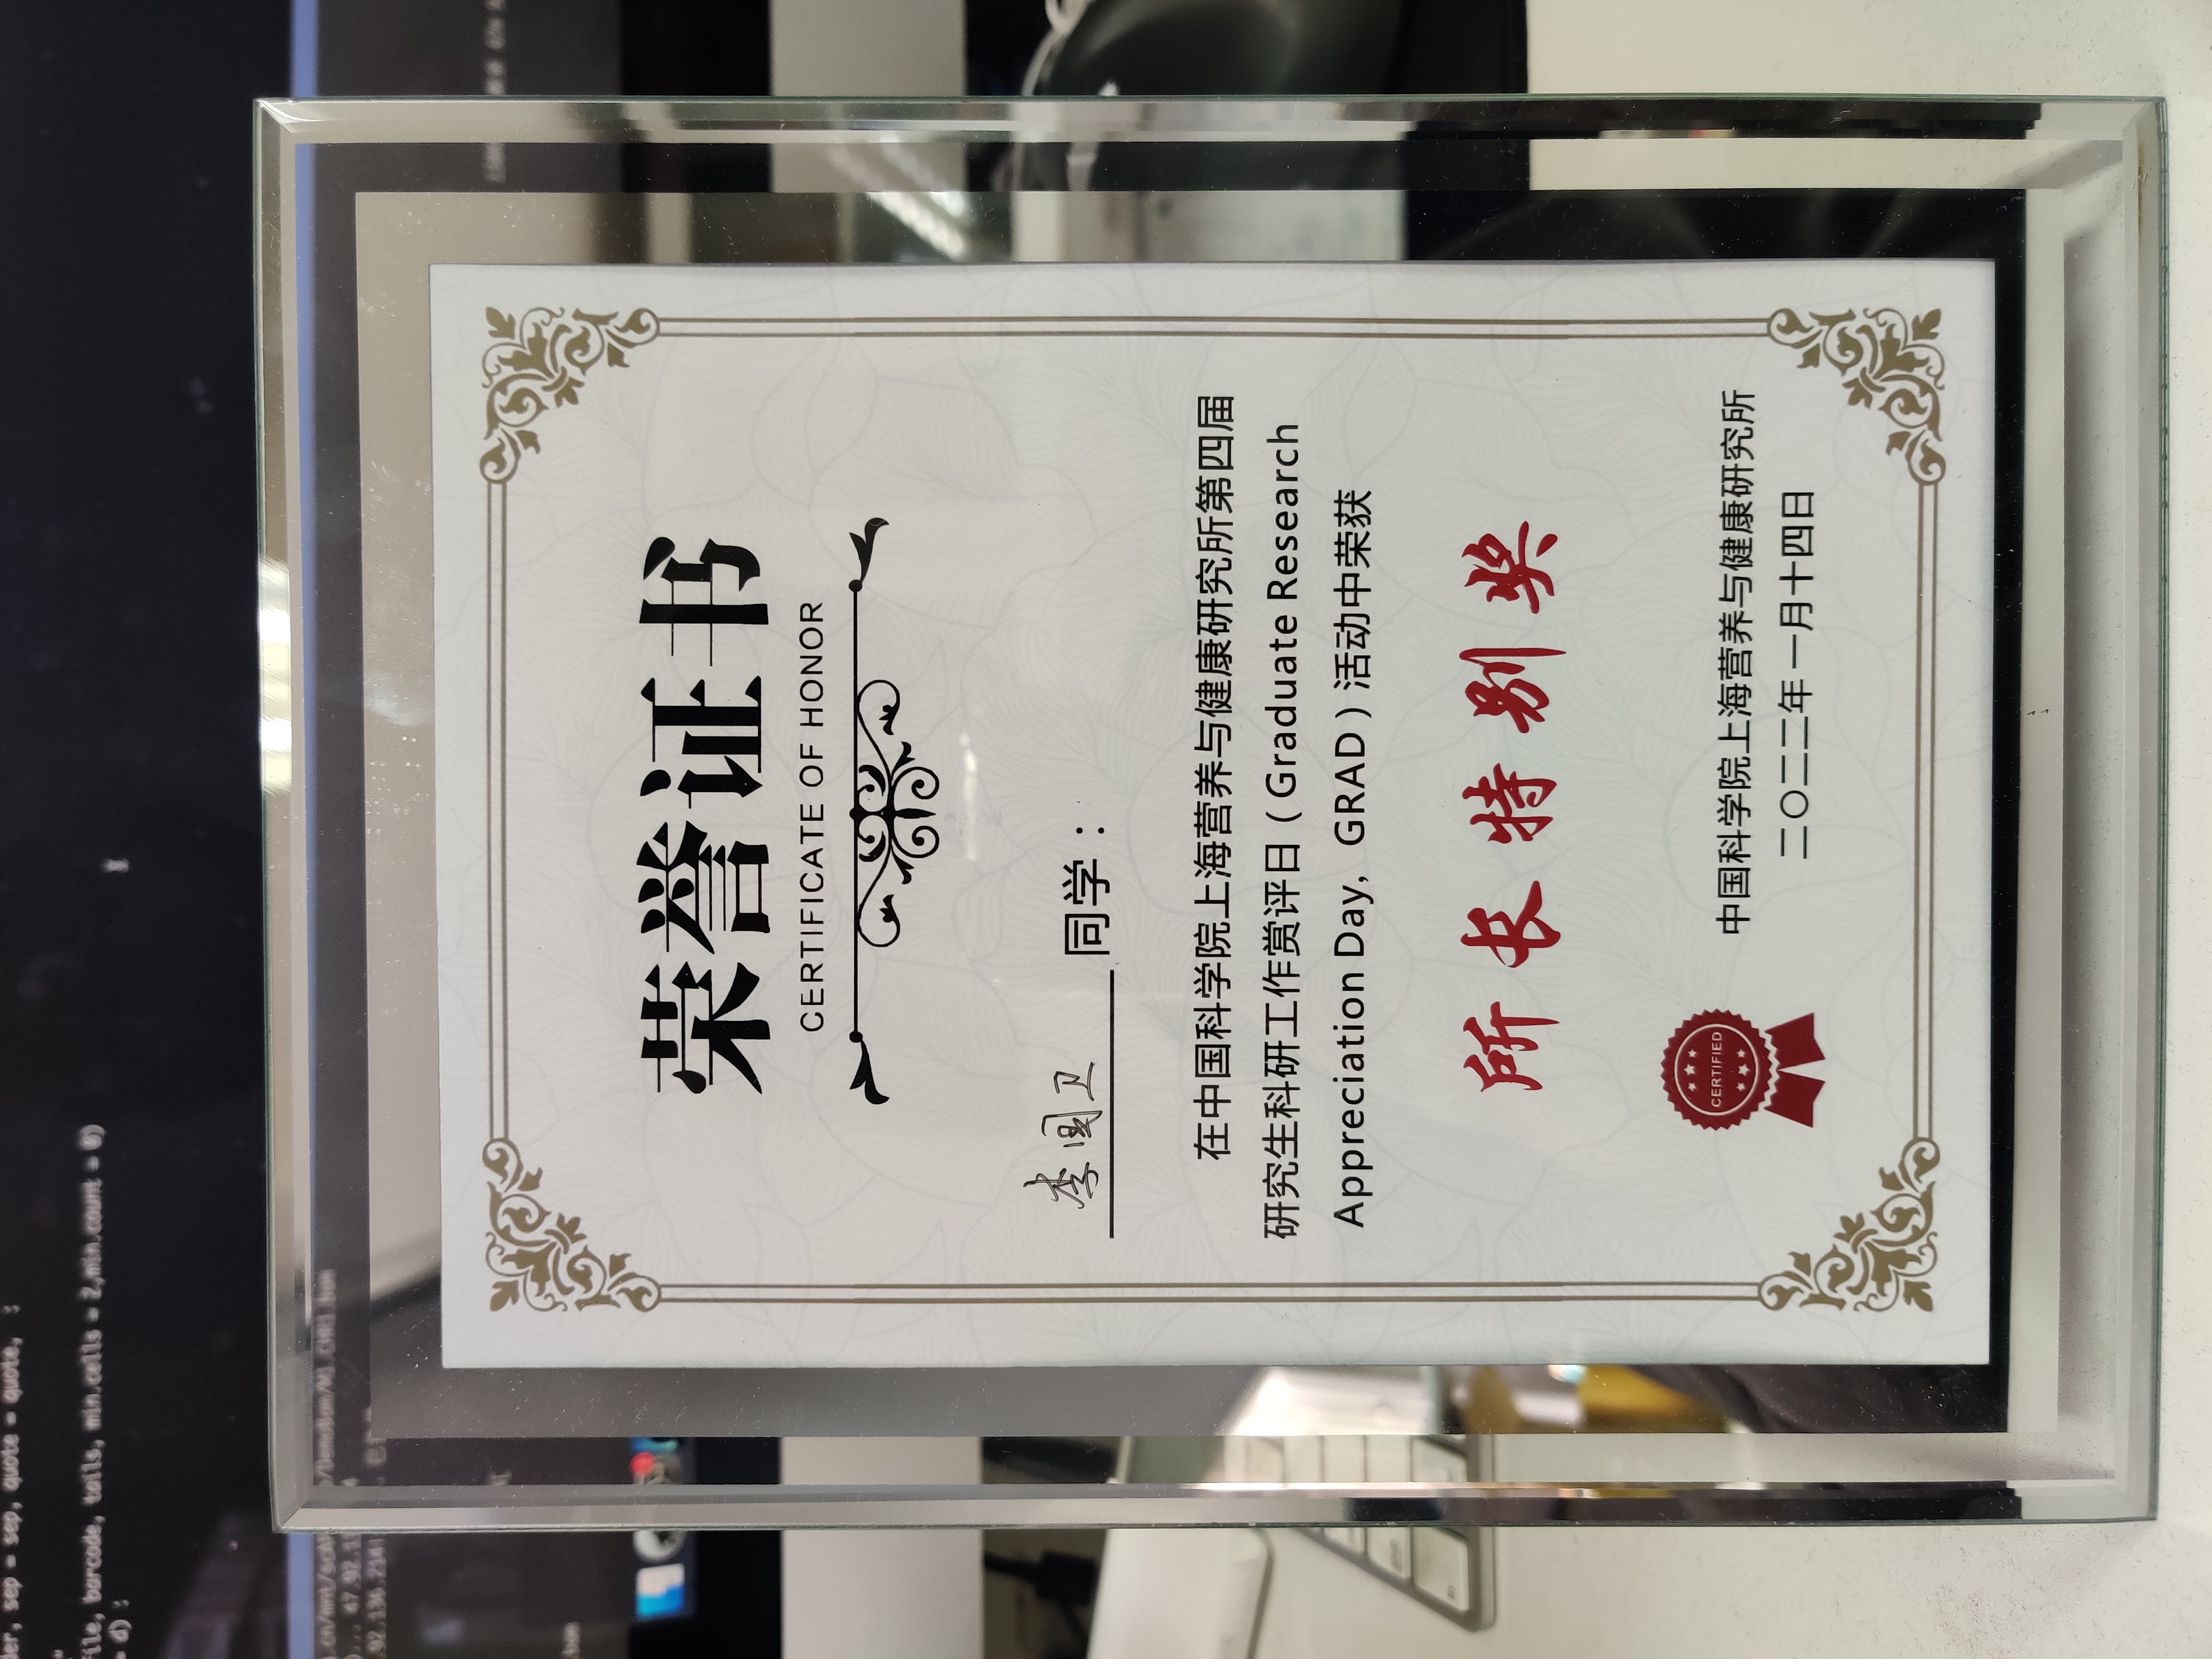 der, sep = sep, quote = quote, :
file, barcode, tails, min.cells = 2,min.count = 0)
= d) :
.cn/mnt/scAP
/DemoBam/M1_CHR1.bam
... 47.92.13
.92.136.214
.bam
荣誉证书
CERTIFICATE OF HONOR
李国卫 同学：
在中国科学院上海营养与健康研究所第四届
研究生科研工作赏评日（Graduate Research
Appreciation Day，GRAD）活动中荣获
所长特别奖
CERTIFIED
中国科学院上海营养与健康研究所
二〇二二年一月十四日